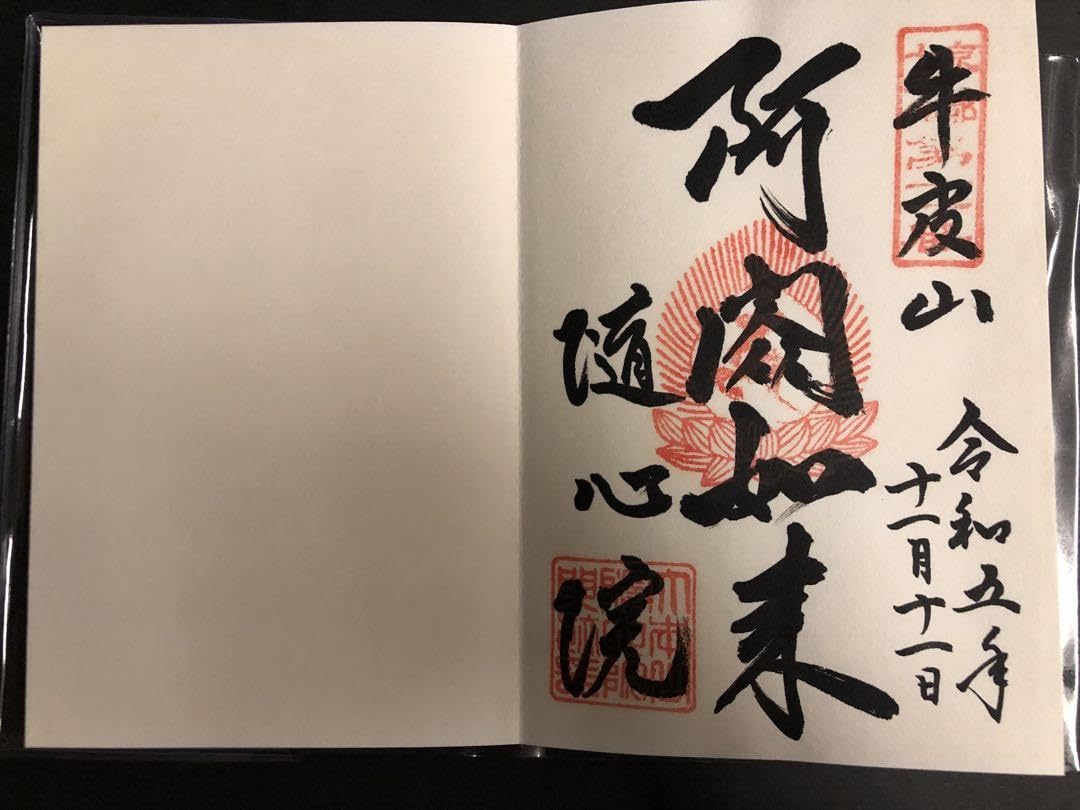 牛皮山
令和五年
十一月十一日
阿閦如来
随心院